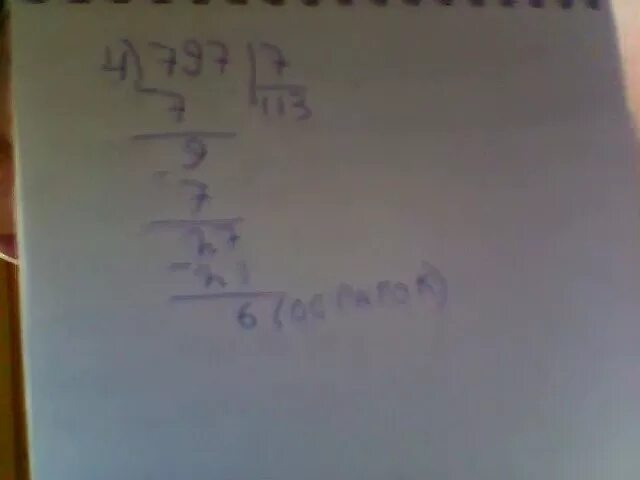 4) 797 | 7
7 113
9
- 7
27
- 21
6 (остаток)